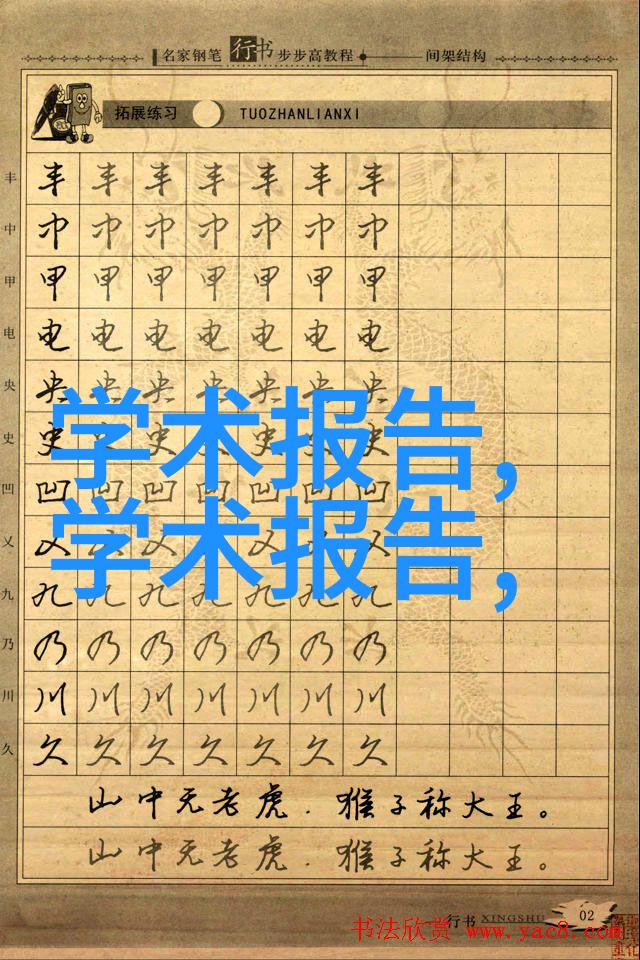 名家钢笔 行书 步步高教程 间架结构
拓展练习 TUOZHANLIANXI
丰 丰 丰 丰 丰 丰 丰 丰
中 中 中 中 中 中 中 中
甲 甲 甲 甲 甲 甲 甲 甲
电 电 电 电 电 电 电 电
央 央 央 央 央 央 央 央
学术报告,
史 史 史 史 史 史 史 史
凹 凹 凹 凹 凹 凹 凹 凹
学术报告,
乂 乂 乂 乂 乂 乂 乂 乂
九 九 九 九 九 九 九 九
乃 乃 乃 乃 乃 乃 乃 乃
川 川 川 川 川 川 川 川
久 久 久 久 久 久 久 久
山中无老虎.猴子称大王。
山中无老虎.猴子称大王。
行书 XINGSHU 02
书法欣赏 www.yac8.com